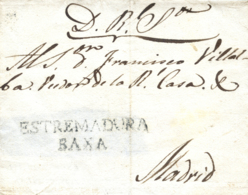 D. R.l S.or
Al S.or Francisco Villal-
ba Veedor de la R. Casa, &
ESTREMADURA
BAXA
Madrid